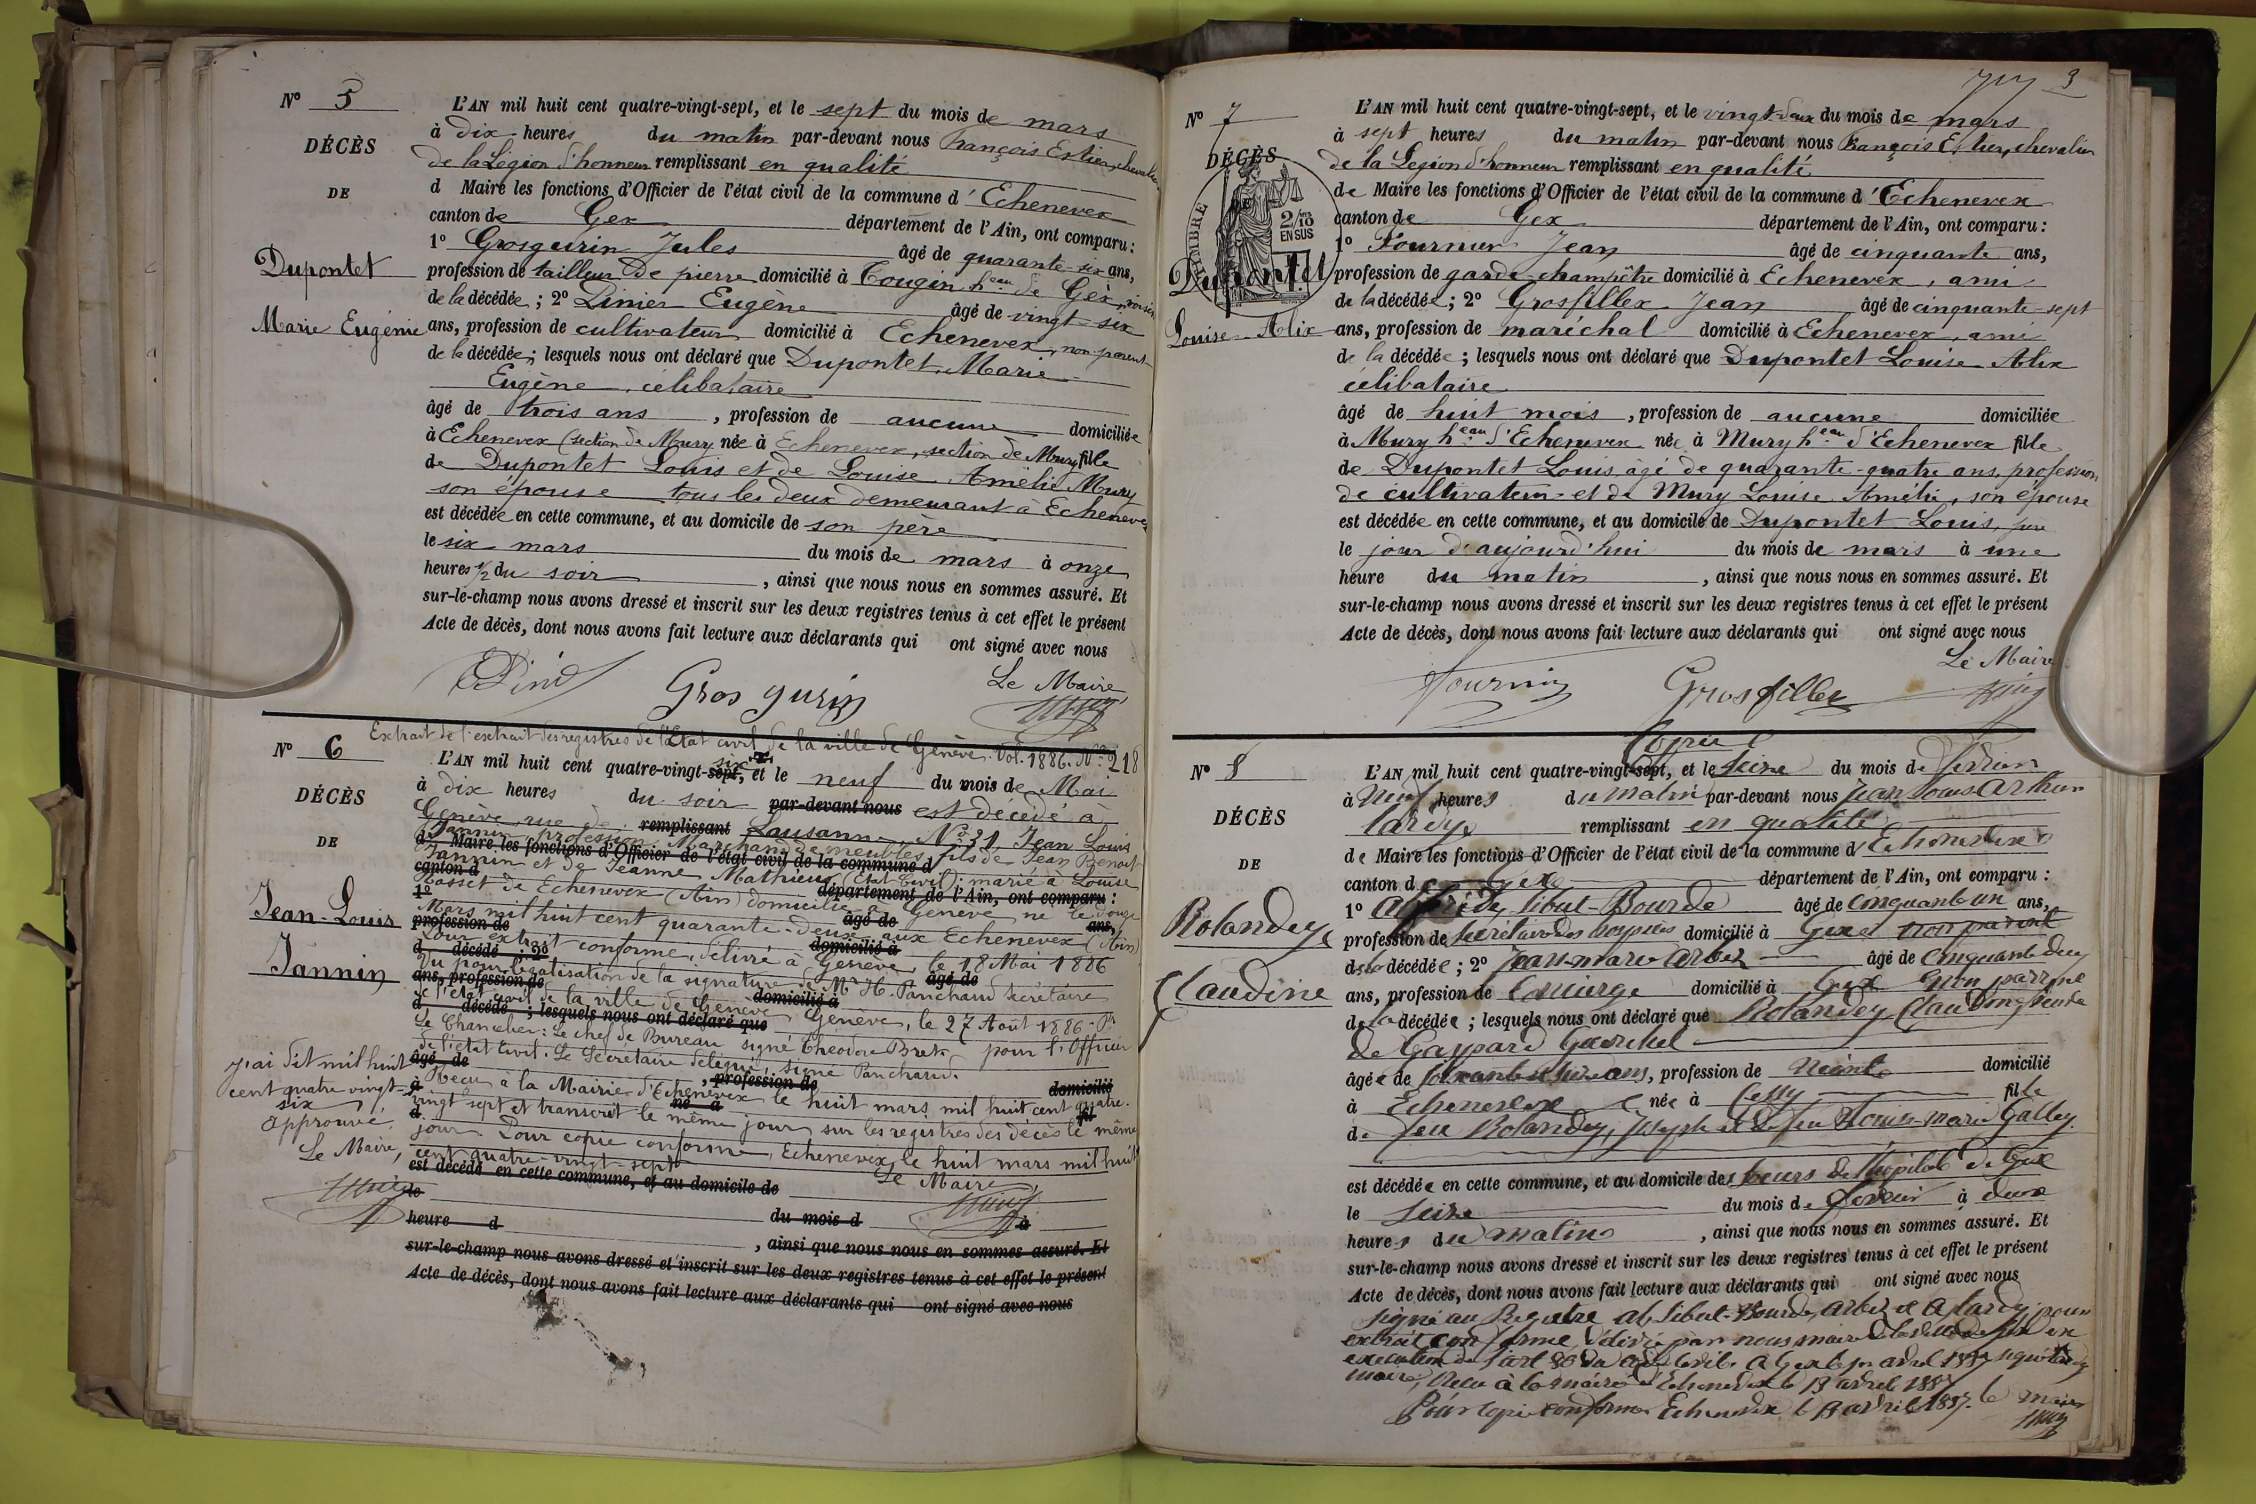 N° 5
DÉCÈS
DE
Dupontet
Marie Eugénie
L'AN mil huit cent quatre-vingt-sept, et le sept du mois de mars
à dix heures du matin par-devant nous François Estier, chevalier
de la Légion d'honneur remplissant en qualité
d Maire les fonctions d'Officier de l'état civil de la commune d'Echenevex
canton de Gex département de l'Ain, ont comparu :
1° Grosgurin Jules âgé de quarante-six ans,
profession de tailleur de pierre domicilié à Tougin h.eau de Gex, voisin
de la décédée ; 2° Linier Eugène âgé de vingt-six
ans, profession de cultivateur domicilié à Echenevex, non parent
de la décédée ; lesquels nous ont déclaré que Dupontet Marie
Eugène, célibataire
âgé de trois ans, profession de aucune domiciliée
à Echenevex (section de Mury née à Echenevex, section de Mury fille
de Dupontet Louis et de Louise Amélie Mury
son épouse tous les deux demeurant à Echenevex
est décédée en cette commune, et au domicile de son père
le six mars du mois de mars à onze
heures 1/2 du soir, ainsi que nous nous en sommes assuré. Et
sur-le-champ nous avons dressé et inscrit sur les deux registres tenus à cet effet le présent
Acte de décès, dont nous avons fait lecture aux déclarants qui ont signé avec nous
Le Maire
Gros gurin
N° 6
DÉCÈS
DE
Jean-Louis
Jannin
Extrait de l'extrait des registres de l'Etat civil de la ville de Genève. Vol. 1886. N° 218
L'AN mil huit cent quatre-vingt-sept, six et le neuf du mois de Mai
à dix heures du soir par-devant nous est décédé à
Genève rue de remplissant Lausanne N° 31, Jean Louis
Jannin, profession Marchand de meubles, fils de Jean Benoit
d Maire les fonctions d'Officier de l'état civil de la commune d
Jannin et de Jeanne Mathieu (Etat Civil) : marié à Louise
canton d département de l'Ain, ont comparu :
Rosset de Echenevex (Ain) domicilié à Genève né le douze
1° âgé de ans,
Mars mil huit cent quarante-deux aux Echenevex (Ain)
profession de domicilié à
Pour extrait conforme, délivré à Genève, le 18 Mai 1886
d décédé ; 2° âgé de
Vu pour légalisation de la signature de Mr H. Panchaud Secrétaire
ans, profession de domicilié à
de l'état civil de la ville de Genève Genève, le 27 Août 1886. Pr
d décédé ; lesquels nous ont déclaré que
Le Chancelier : Le chef de Bureau signé Théodore Bret. pour l'Officier
de l'état Civil. Le Secrétaire délégué, signé Panchaud.
âgé de, profession de domicilié
Reçu à la Mairie d'Echenevex le huit mars mil huit cent quatre-
à né à fil
vingt sept et transcrit le même jour sur les registres des décès le même
d
jour Pour copie conforme, Echenevex, le huit mars mil huit
cent quatre-vingt-sept
est décédé en cette commune, et au domicile de
Le Maire,
le du mois d à
heure d, ainsi que nous nous en sommes assuré. Et
sur-le-champ nous avons dressé et inscrit sur les deux registres tenus à cet effet le présent
Acte de décès, dont nous avons fait lecture aux déclarants qui ont signé avec nous
J'ai dit mil huit
cent quatre vingt-
six
approuvé.
Le Maire,
3
N° 7
DÉCÈS
DE
TIMBRE
2/10
EN SUS
Dupontet
Louise Alix
L'AN mil huit cent quatre-vingt-sept, et le vingt-deux du mois de mars
à sept heures du matin par-devant nous François Estier, chevalier
de la Légion d'honneur remplissant en qualité
de Maire les fonctions d'Officier de l'état civil de la commune d'Echenevex
canton de Gex département de l'Ain, ont comparu :
1° Fournier Jean âgé de cinquante ans,
profession de garde-champêtre domicilié à Echenevex, ami
de la décédée ; 2° Grosfillex Jean âgé de cinquante-sept
ans, profession de maréchal domicilié à Echenevex, ami
de la décédée ; lesquels nous ont déclaré que Dupontet Louise Alix
célibataire
âgé de huit mois, profession de aucune domiciliée
à Mury h.eau d'Echenevex née à Mury h.eau d'Echenevex fille
de Dupontet Louis, âgé de quarante-quatre ans, profession
de cultivateur et de Mury Louise Amélie, son épouse
est décédée en cette commune, et au domicile de Dupontet Louis, père
le jour d'aujourd'hui du mois de mars à une
heure du matin, ainsi que nous nous en sommes assuré. Et
sur-le-champ nous avons dressé et inscrit sur les deux registres tenus à cet effet le présent
Acte de décès, dont nous avons fait lecture aux déclarants qui ont signé avec nous
Le Maire
Fournier
Grosfillex
Copie
N° 8
DÉCÈS
DE
Rolandey
Claudine
L'AN mil huit cent quatre-vingt-sept, et le seize du mois de février
à neuf heures du matin par-devant nous Jean Louis Arthur
Lardy remplissant en qualité
de Maire les fonctions d'Officier de l'état civil de la commune d'Echenevex
canton d Gex département de l'Ain, ont comparu :
1° Sibut-Bourde âgé de cinquante un ans,
profession de Secrétaire des hospices domicilié à Gex non parent
de la décédée ; 2° Jean marie Arbez âgé de cinquante deux
ans, profession de Concierge domicilié à Gex non parent
de la décédée ; lesquels nous ont déclaré que Rolandey Claudine, veuve
de Gaspard
âgée de soixante seize ans, profession de domicilié
à Echenevex née à Cessy fille
de feu Rolandey, Joseph et de feu Louise marie Galley
est décédée en cette commune, et au domicile des soeurs de l'hôpital de Gex
le seize du mois de février à deux
heures du matin, ainsi que nous nous en sommes assuré. Et
sur-le-champ nous avons dressé et inscrit sur les deux registres tenus à cet effet le présent
Acte de décès, dont nous avons fait lecture aux déclarants qui ont signé avec nous
signé au Registre Sibut-Bourde, Arbez et A Lardy pour
extrait conforme délivré par nous maire de la ville de Gex en
exécution de l'art 80 du code civil. A Gex le avril 1887 signé Lardy
maire, Reçu à la mairie d'Echenevex le 13 avril 1887
Pour copie conforme Echenevex le 13 avril 1887. le maire